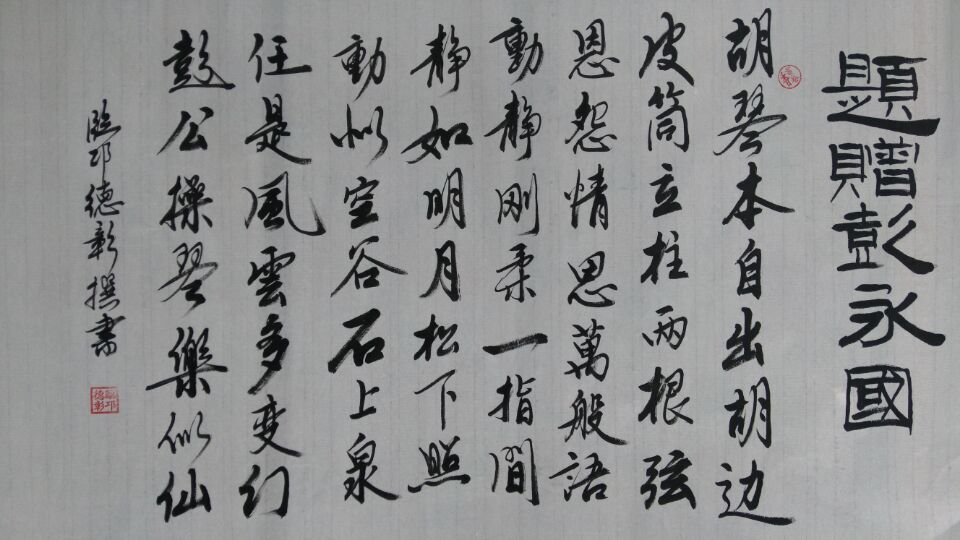 題贈彭永國
胡琴本自出胡边
皮筒立柱两根弦
恩怨情思萬般語
動静剛柔一指間
静如明月松下照
動似空谷石上泉
任是風雲多变幻
彭公操琴樂似仙
临邛德彰撰書